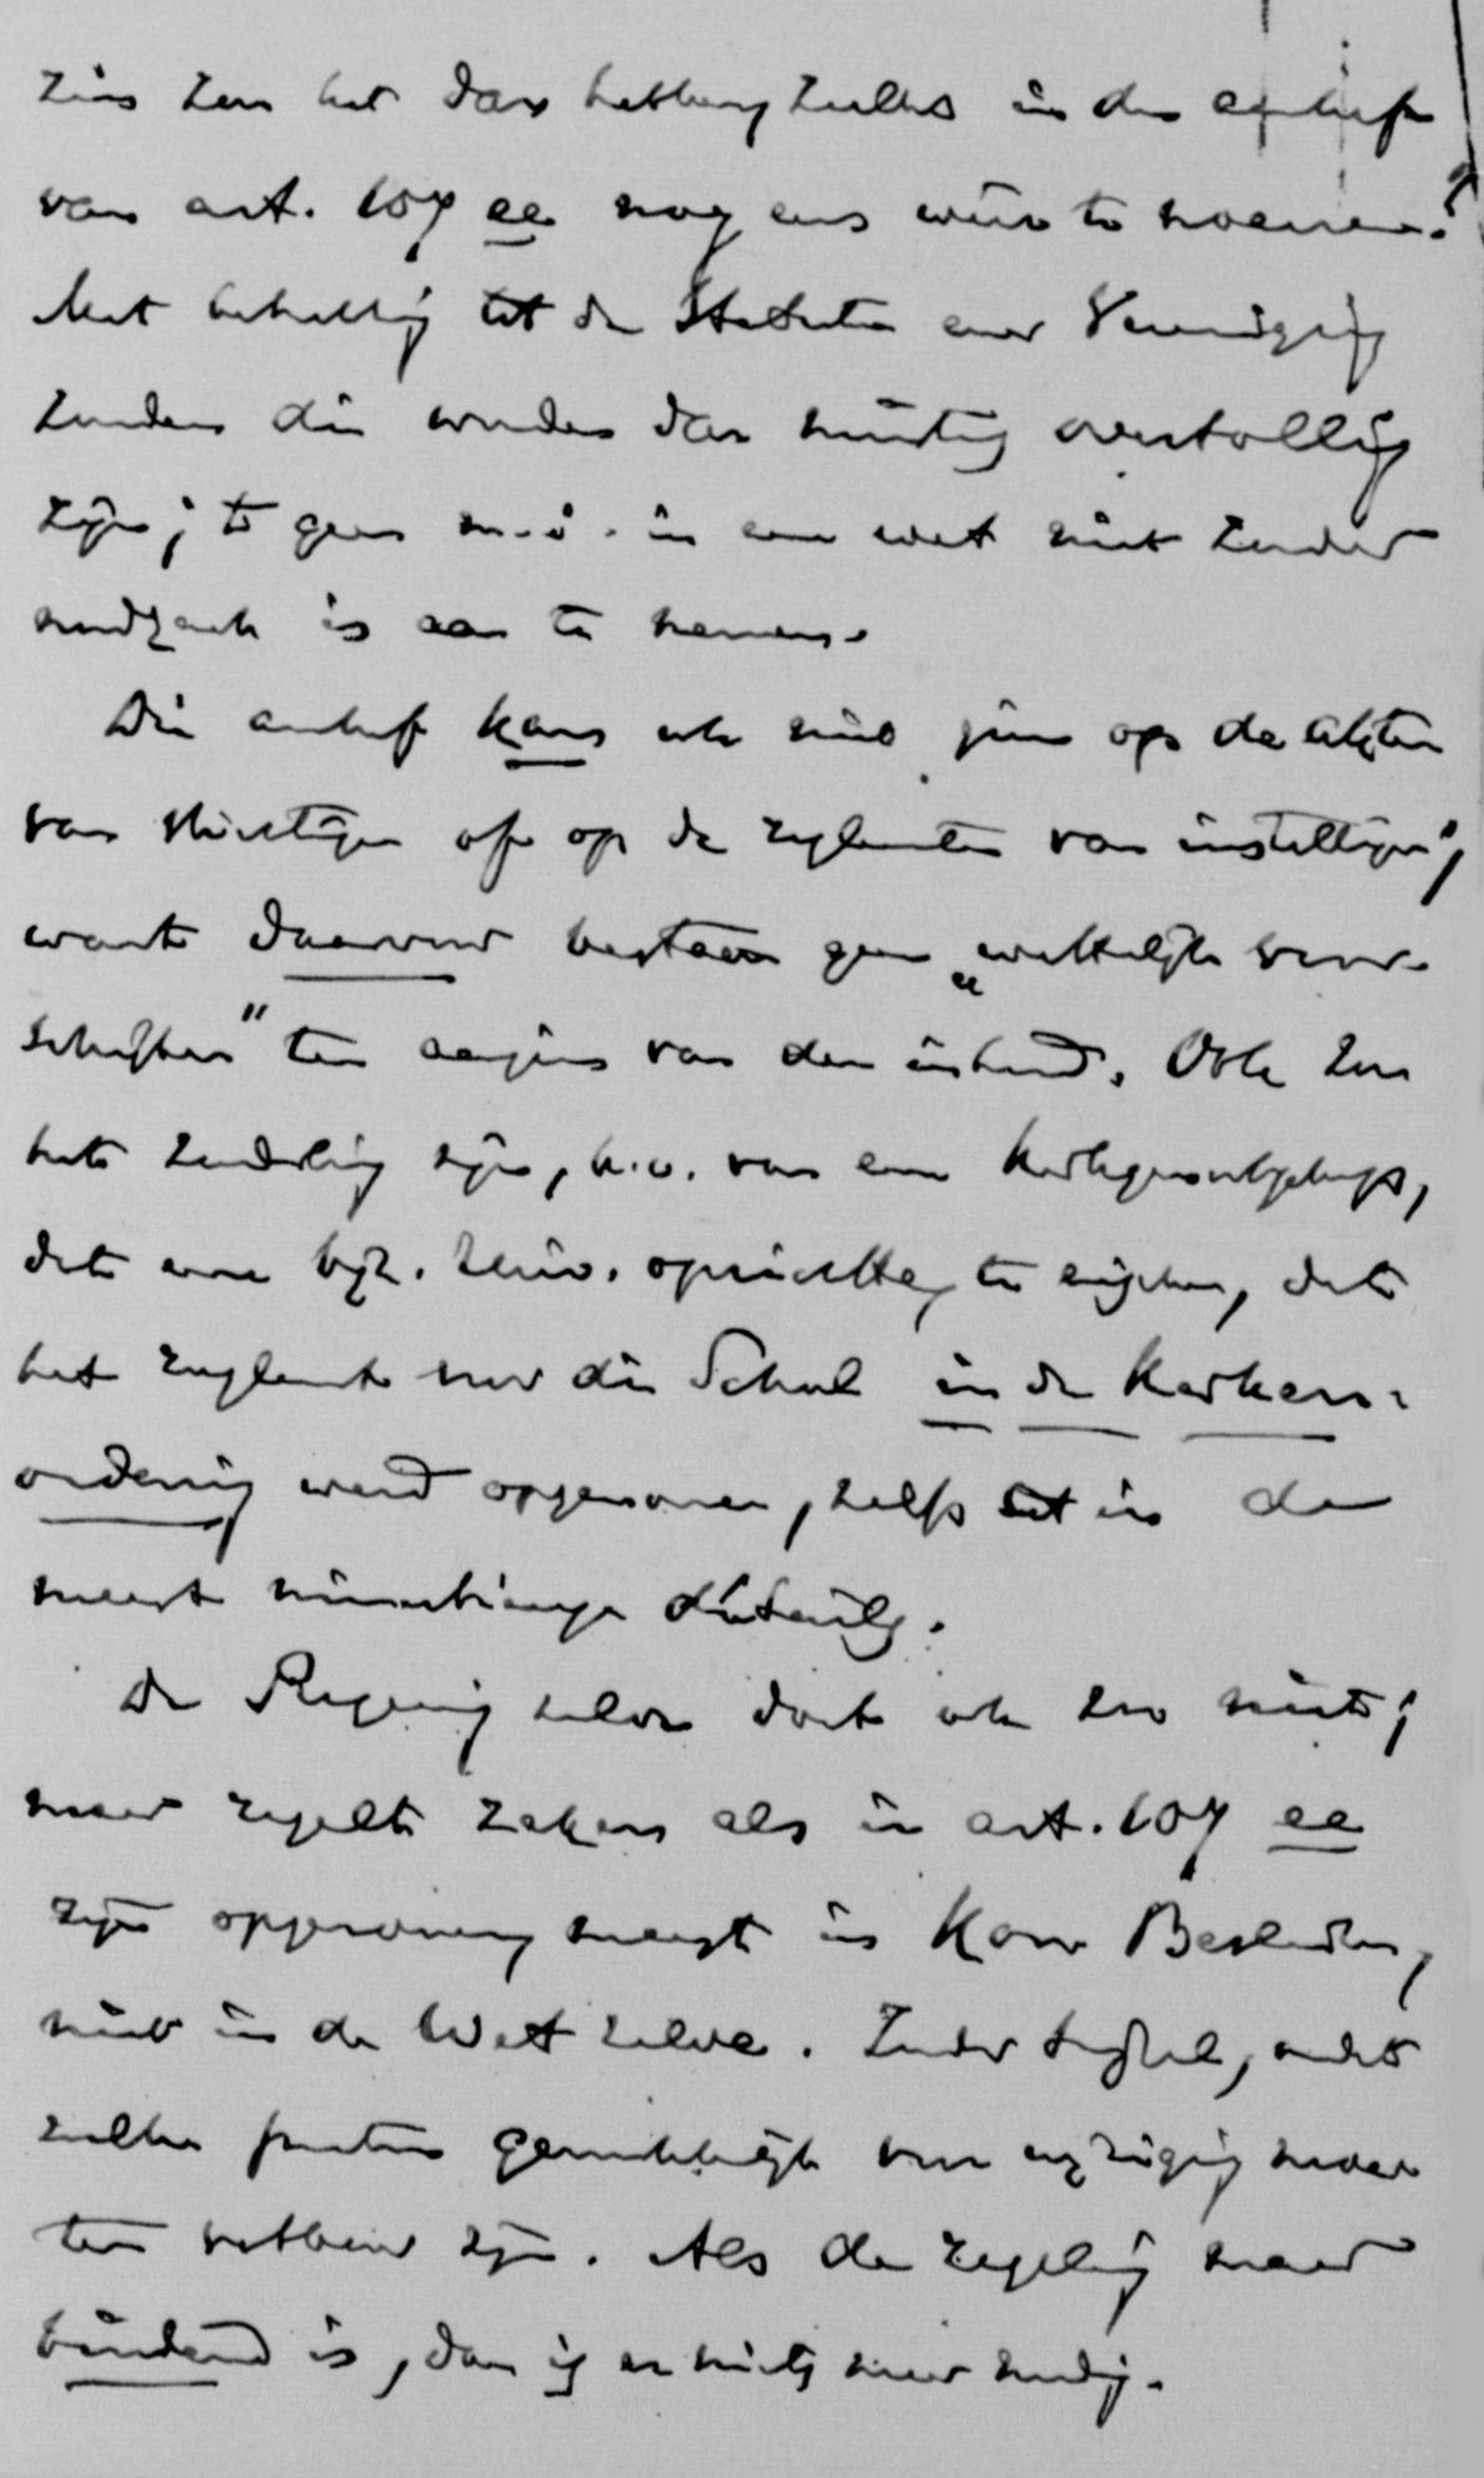 zin zou het dan hebben zulks in den aanhef
van art. 107 ee nog eens weer te noemen?
Met betrekking tot de Statuten eener Vereeniging
zouden die woorden dan niet overtollig
zijn; 't geen m.i. in een wet niet zonder
noodzaak is aan te nemen.
Die aanhef kan ook niet zien op de akten
van stichtingen of op de reglementen van instellingen;
want daarvoor bestaan geen „wettelijke voor-
schriften" ten aanzien van den inhoud. Ook zou
het zonderling zijn, b.v. van een Kerkgenootschap,
dat eene bijz. univ. oprichtte, te eischen, dat
het reglement voor die School in de Kerken-
ordening werd opgenomen, zelfs tot in de
meest détails.
De Regeering zelve doet ook zoo niet;
maar regelt zaken als in art. 107 ee
zijn opgenomen meest in Kon. Besluiten,
niet in de Wet zelve. Zonder twijfel, omdat
zulke punten gemakkelijk voor wijziging moe
ten vatbaar zijn. Als de regeling maar
bindend is, dan is er niets meer noodig.